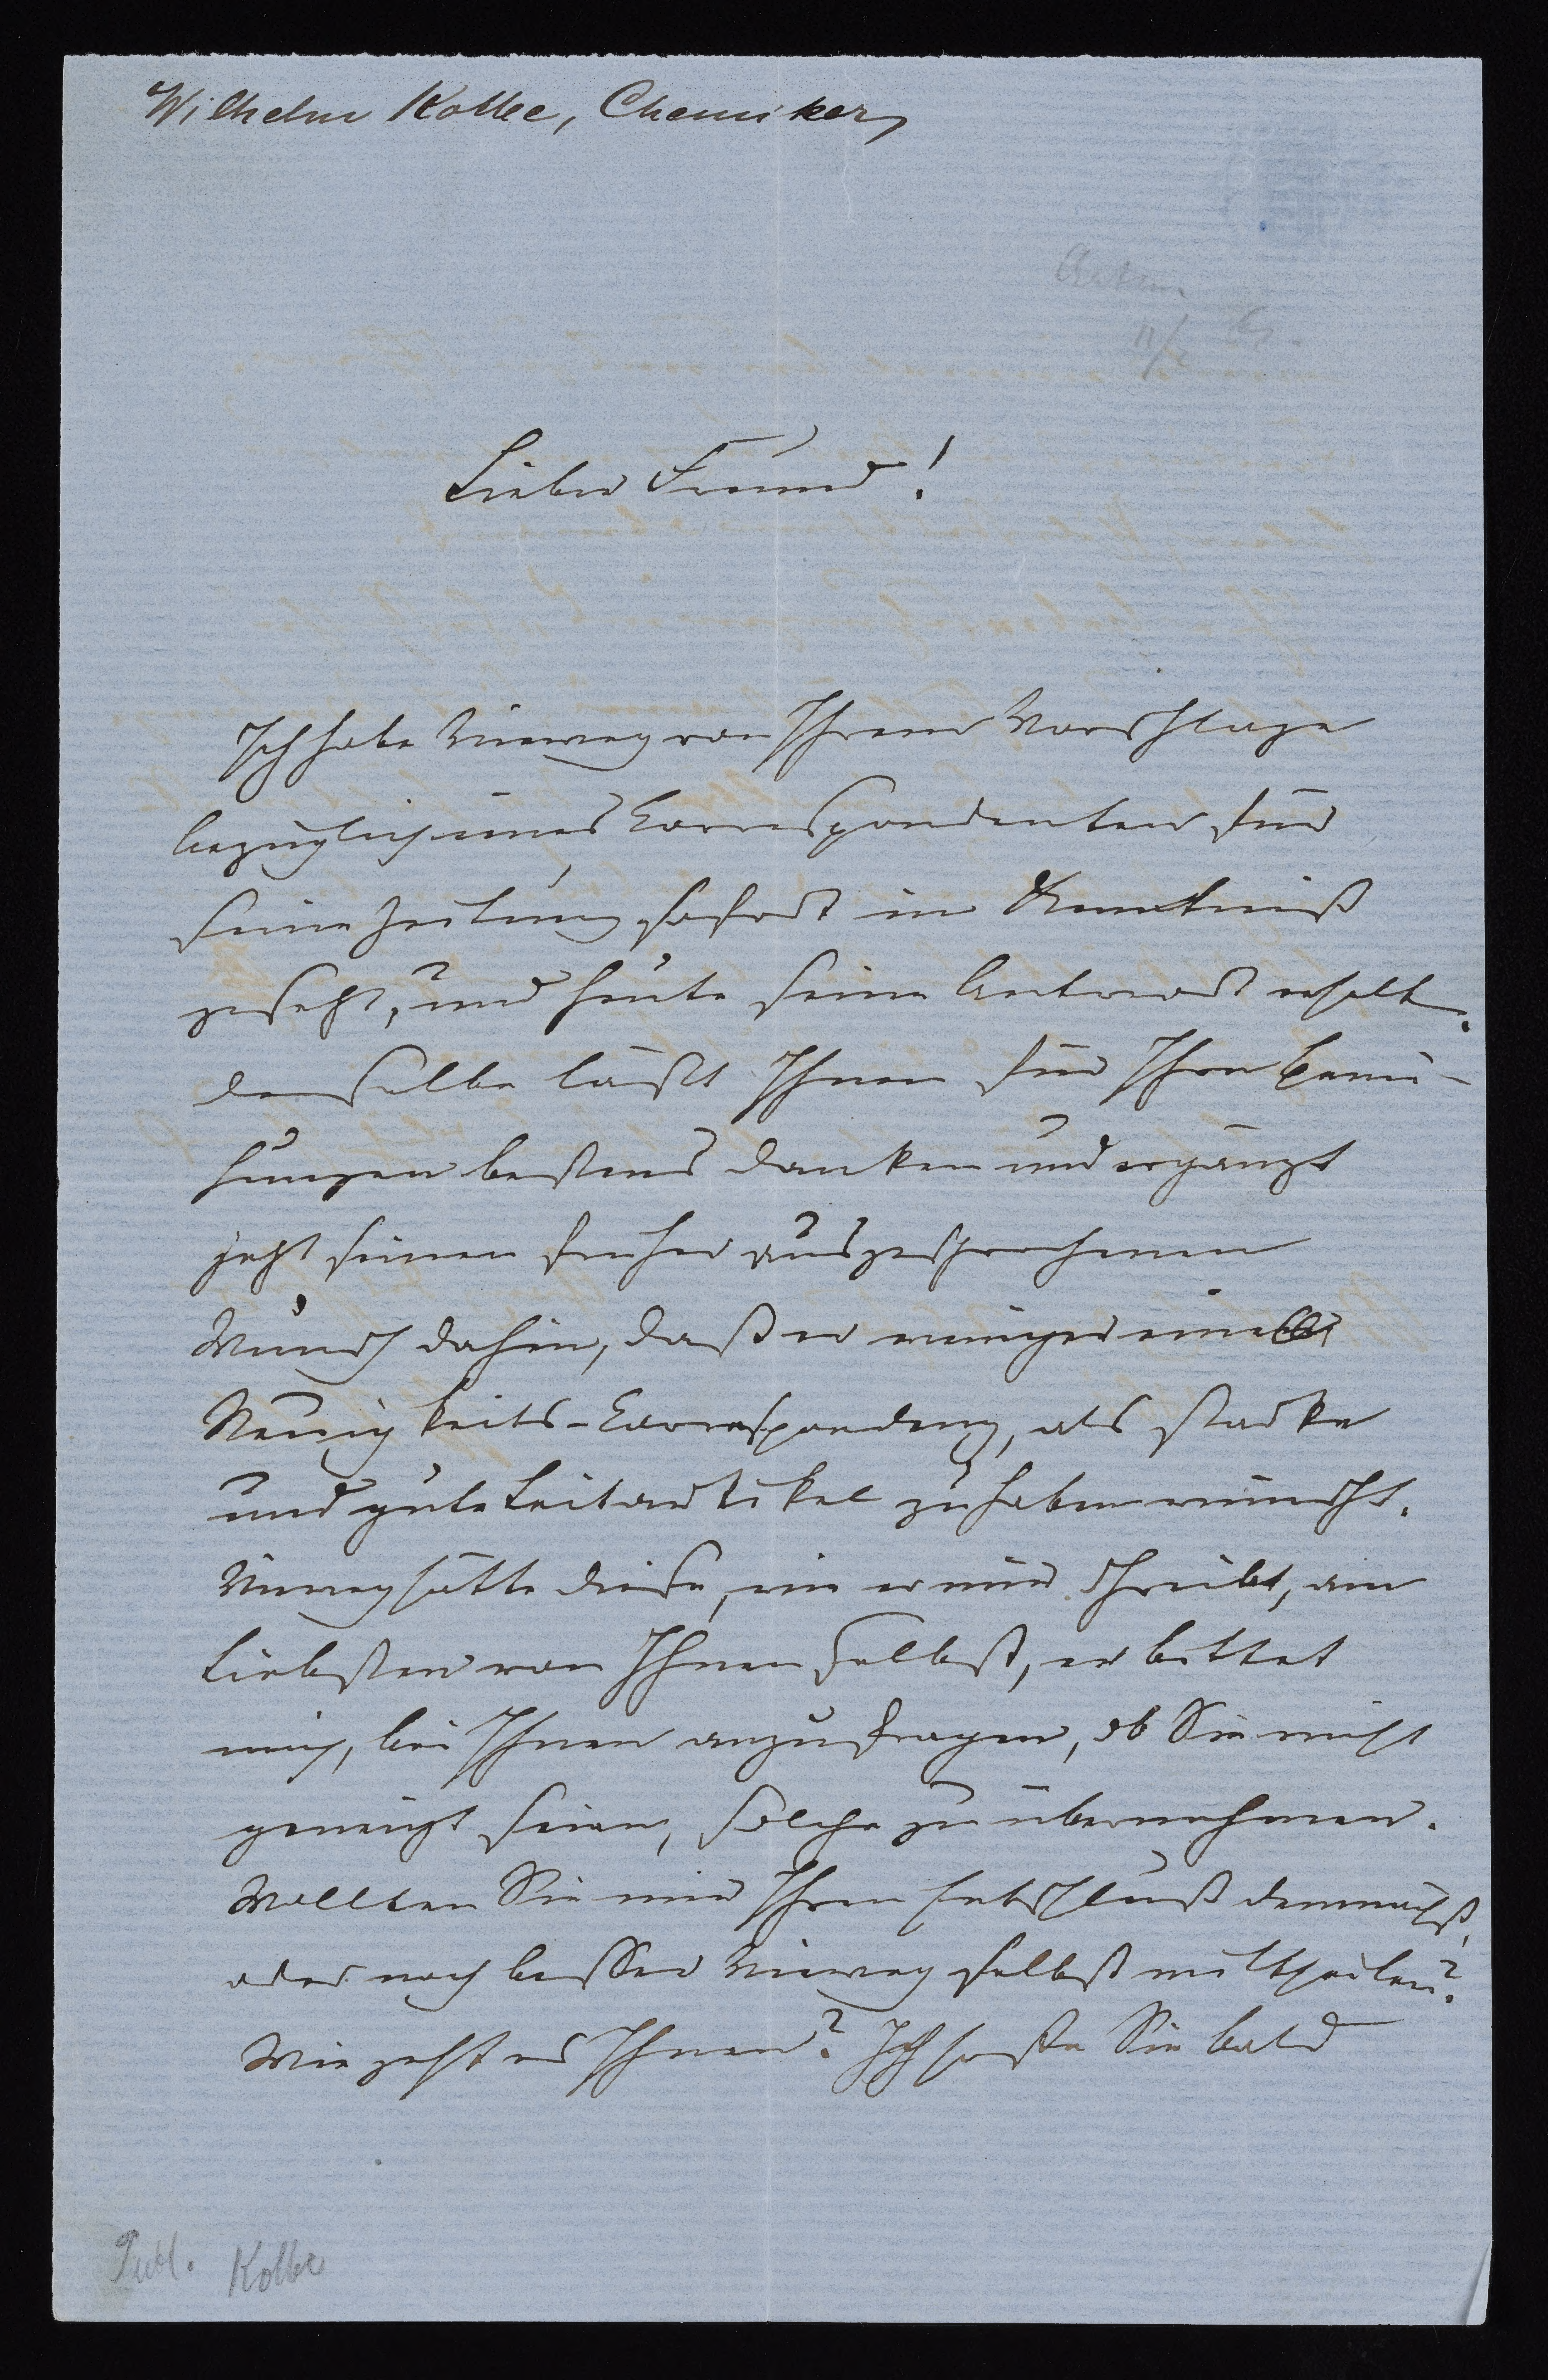 Wilhelm Kolbe, Chemiker,
Antw.
11/2
Lieber Freund!
Ich habe Vieweg von Ihrem Vorschlage
bezüglich eines Correspondenten für
seine Zeitung sofort in Kenntniß
gesetzt, und heute seine Antwort erhalten.
Derselbe läßt Ihnen für Ihre Bemü-
hungen bestens danken und ergänzt
jetzt seinen früher ausgesprochenen
Wunsch dahin, daß er weniger eine
Neuigkeits-Correspondenz, als starke
und gute Leitartikel zu haben wünscht.
Vieweg hätte diese, wie er mir schreibt, am
liebsten von Ihnen selbst, er bittet
mich, bei Ihnen anzufragen, ob Sie nicht
geneigt seien, solche zu übernehmen.
Wollten Sie mir Ihren Entschluß demnächst,
oder noch besser Vieweg selbst mittheilen?
Wie geht es Ihnen? Ich hoffe Sie bald
Publ. Kolbe